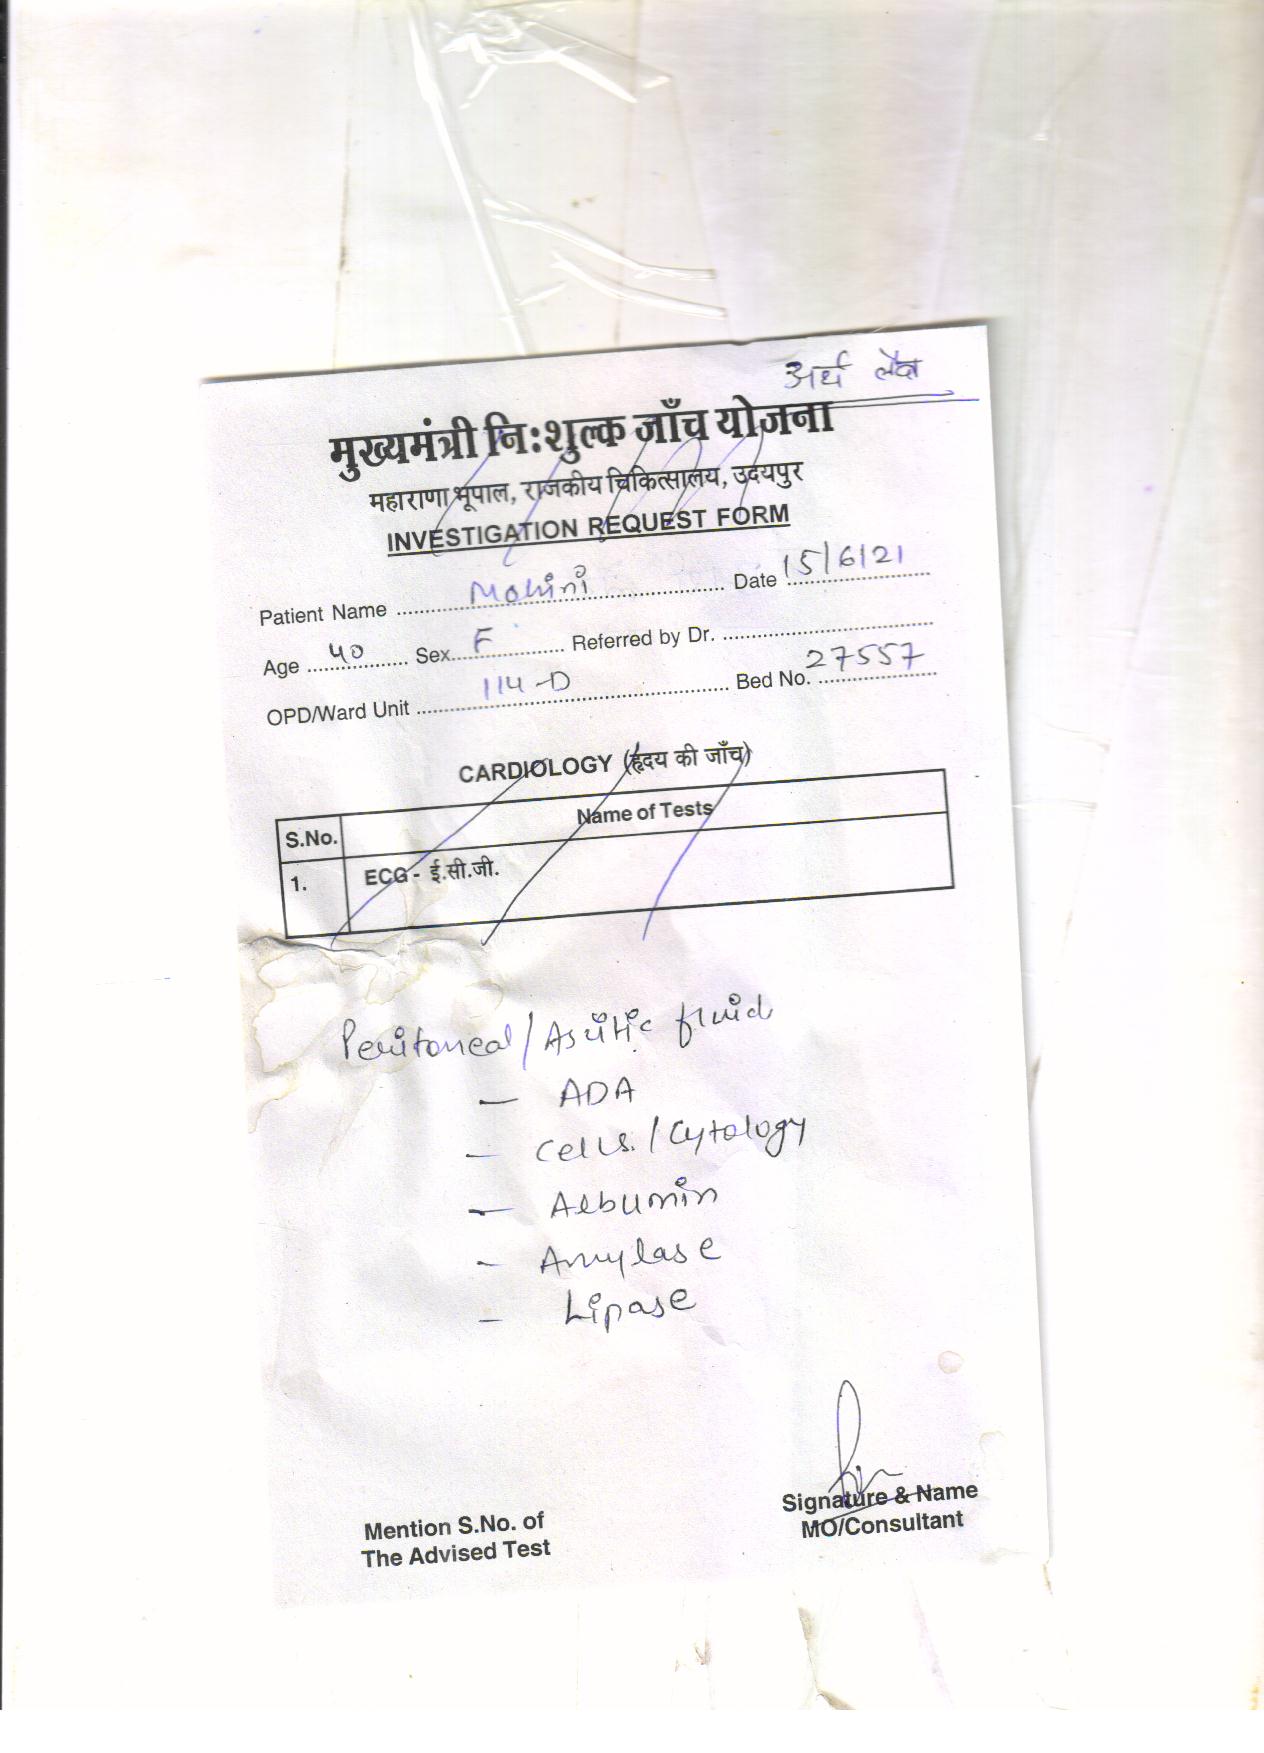 अर्थ लैब
मुख्यमंत्री निःशुल्क जाँच योजना
महाराणा भूपाल, राजकीय चिकित्सालय, उदयपुर
INVESTIGATION REQUEST FORM
Patient Name Mohini Date 15/6/21
Age 40 Sex F Referred by Dr.
OPD/Ward Unit 114-D Bed No. 27557
CARDIOLOGY (हृदय की जाँच)
S.No. Name of Tests
1. ECG - ई.सी.जी.
Peritoneal/Asitic fluid
— ADA
— Cells./Cytology
— Albumin
- Amylase
- Lipase
Signature & Name
MO/Consultant
Mention S.No. of
The Advised Test